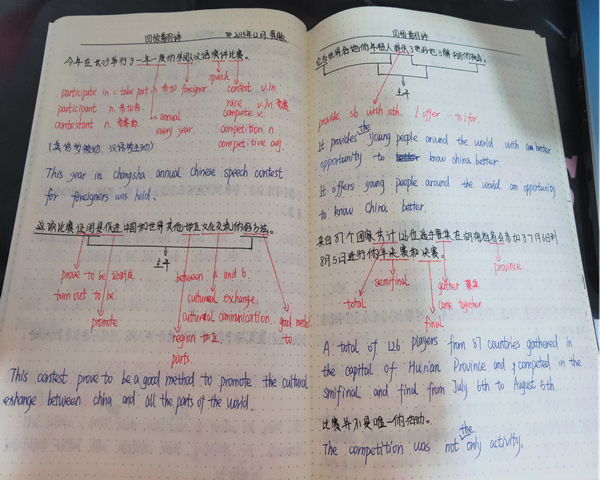 四级翻译 2015年12月 真题
今年在长沙举行了一年一度的外国人汉语演讲比赛。
speech
participate in = take part in 参加 foreigner contest v./n.
participant n. 参加者 race v./n.
contestant n. annual compete v.
every year. competition n.
competitive adj.
This year in changsha annual chinese speech contest
for foreigners was held.
这项比赛证明是促进中国和世界其他地区文化交流的好方法。
主干
prove to be 证明是 between a and b.
turn out to be cultural exchange.
promote cultural communication. good method
region 地区 to
parts.
This contest prove to be a good method to promote the cultural
exhange between china and all the parts of the world.
四级翻译
它为世界各地的年轻人提供了更好地了解中国的机会。
主干
provide sb with sth. offer
the
It provides young people around the world with better
opportunity to know china better.
It offers young people around the world an opportunity
to know China better.
来自87个国家共计126位选手聚集在湖南省省会参加了7月6日到
8月5日进行的半决赛和决赛。
province
semifinal
total gather 聚集
come together
final
A total of 126 players from 87 countries gathered in
the capital of Hunian Province and competed in the
smifinal and final from July 6th to August 5th.
比赛并不是唯一的活动。
the
The competition was not only activity.